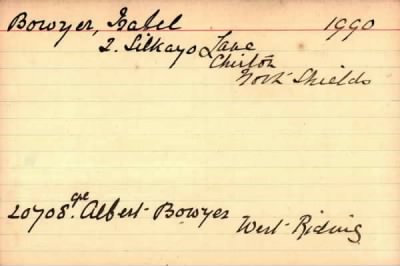 Bowyer, Isabel 1990
2. Silkays Lane
Chirton
North Shields
20708. Cpl Albert Bowyer West Riding